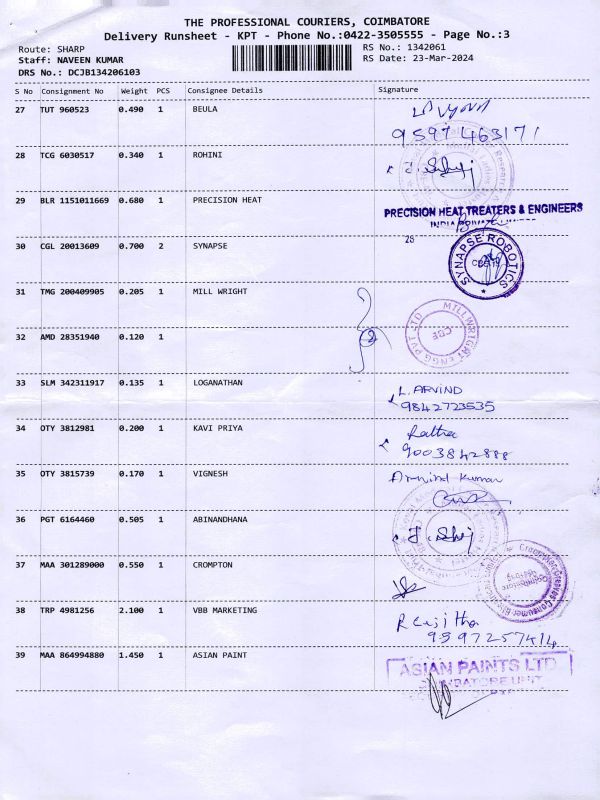 THE PROFESSIONAL COURIERS, COIMBATORE
Delivery Runsheet - KPT - Phone No.:0422-3505555 - Page No.:3
Route: SHARP RS No.: 1342061
Staff: NAVEEN KUMAR RS Date: 23-Mar-2024
DRS No.: DCJB134206103
S No Consignment No Weight PCS Consignee Details Signature
27 TUT 960523 0.490 1 BEULA
9597463171
28 TCG 6030517 0.340 1 ROHINI
29 BLR 1151011669 0.680 1 PRECISION HEAT
PRECISION HEAT TREATERS & ENGINEERS
30 CGL 20013609 0.700 2 SYNAPSE
SYNAPSE ROBOTICS
31 TMG 200409905 0.205 1 MILL WRIGHT
MILLWRIGHT ENGG PVT LTD
CBE
32 AMD 28351940 0.120 1
33 SLM 342311917 0.135 1 LOGANATHAN
L. ARVIND
9842723535
34 OTY 3812981 0.200 1 KAVI PRIYA
9003842888
35 OTY 3815739 0.170 1 VIGNESH
Arvind Kumar
36 PGT 6164460 0.505 1 ABINANDHANA
37 MAA 301289000 0.550 1 CROMPTON
Crompton Greaves Consumer
38 TRP 4981256 2.100 1 VBB MARKETING
9597257414
39 MAA 864994880 1.450 1 ASIAN PAINT
ASIAN PAINTS LTD